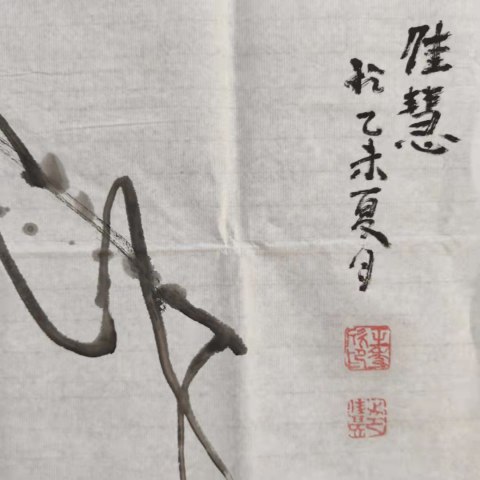 佳慧
于乙未夏月